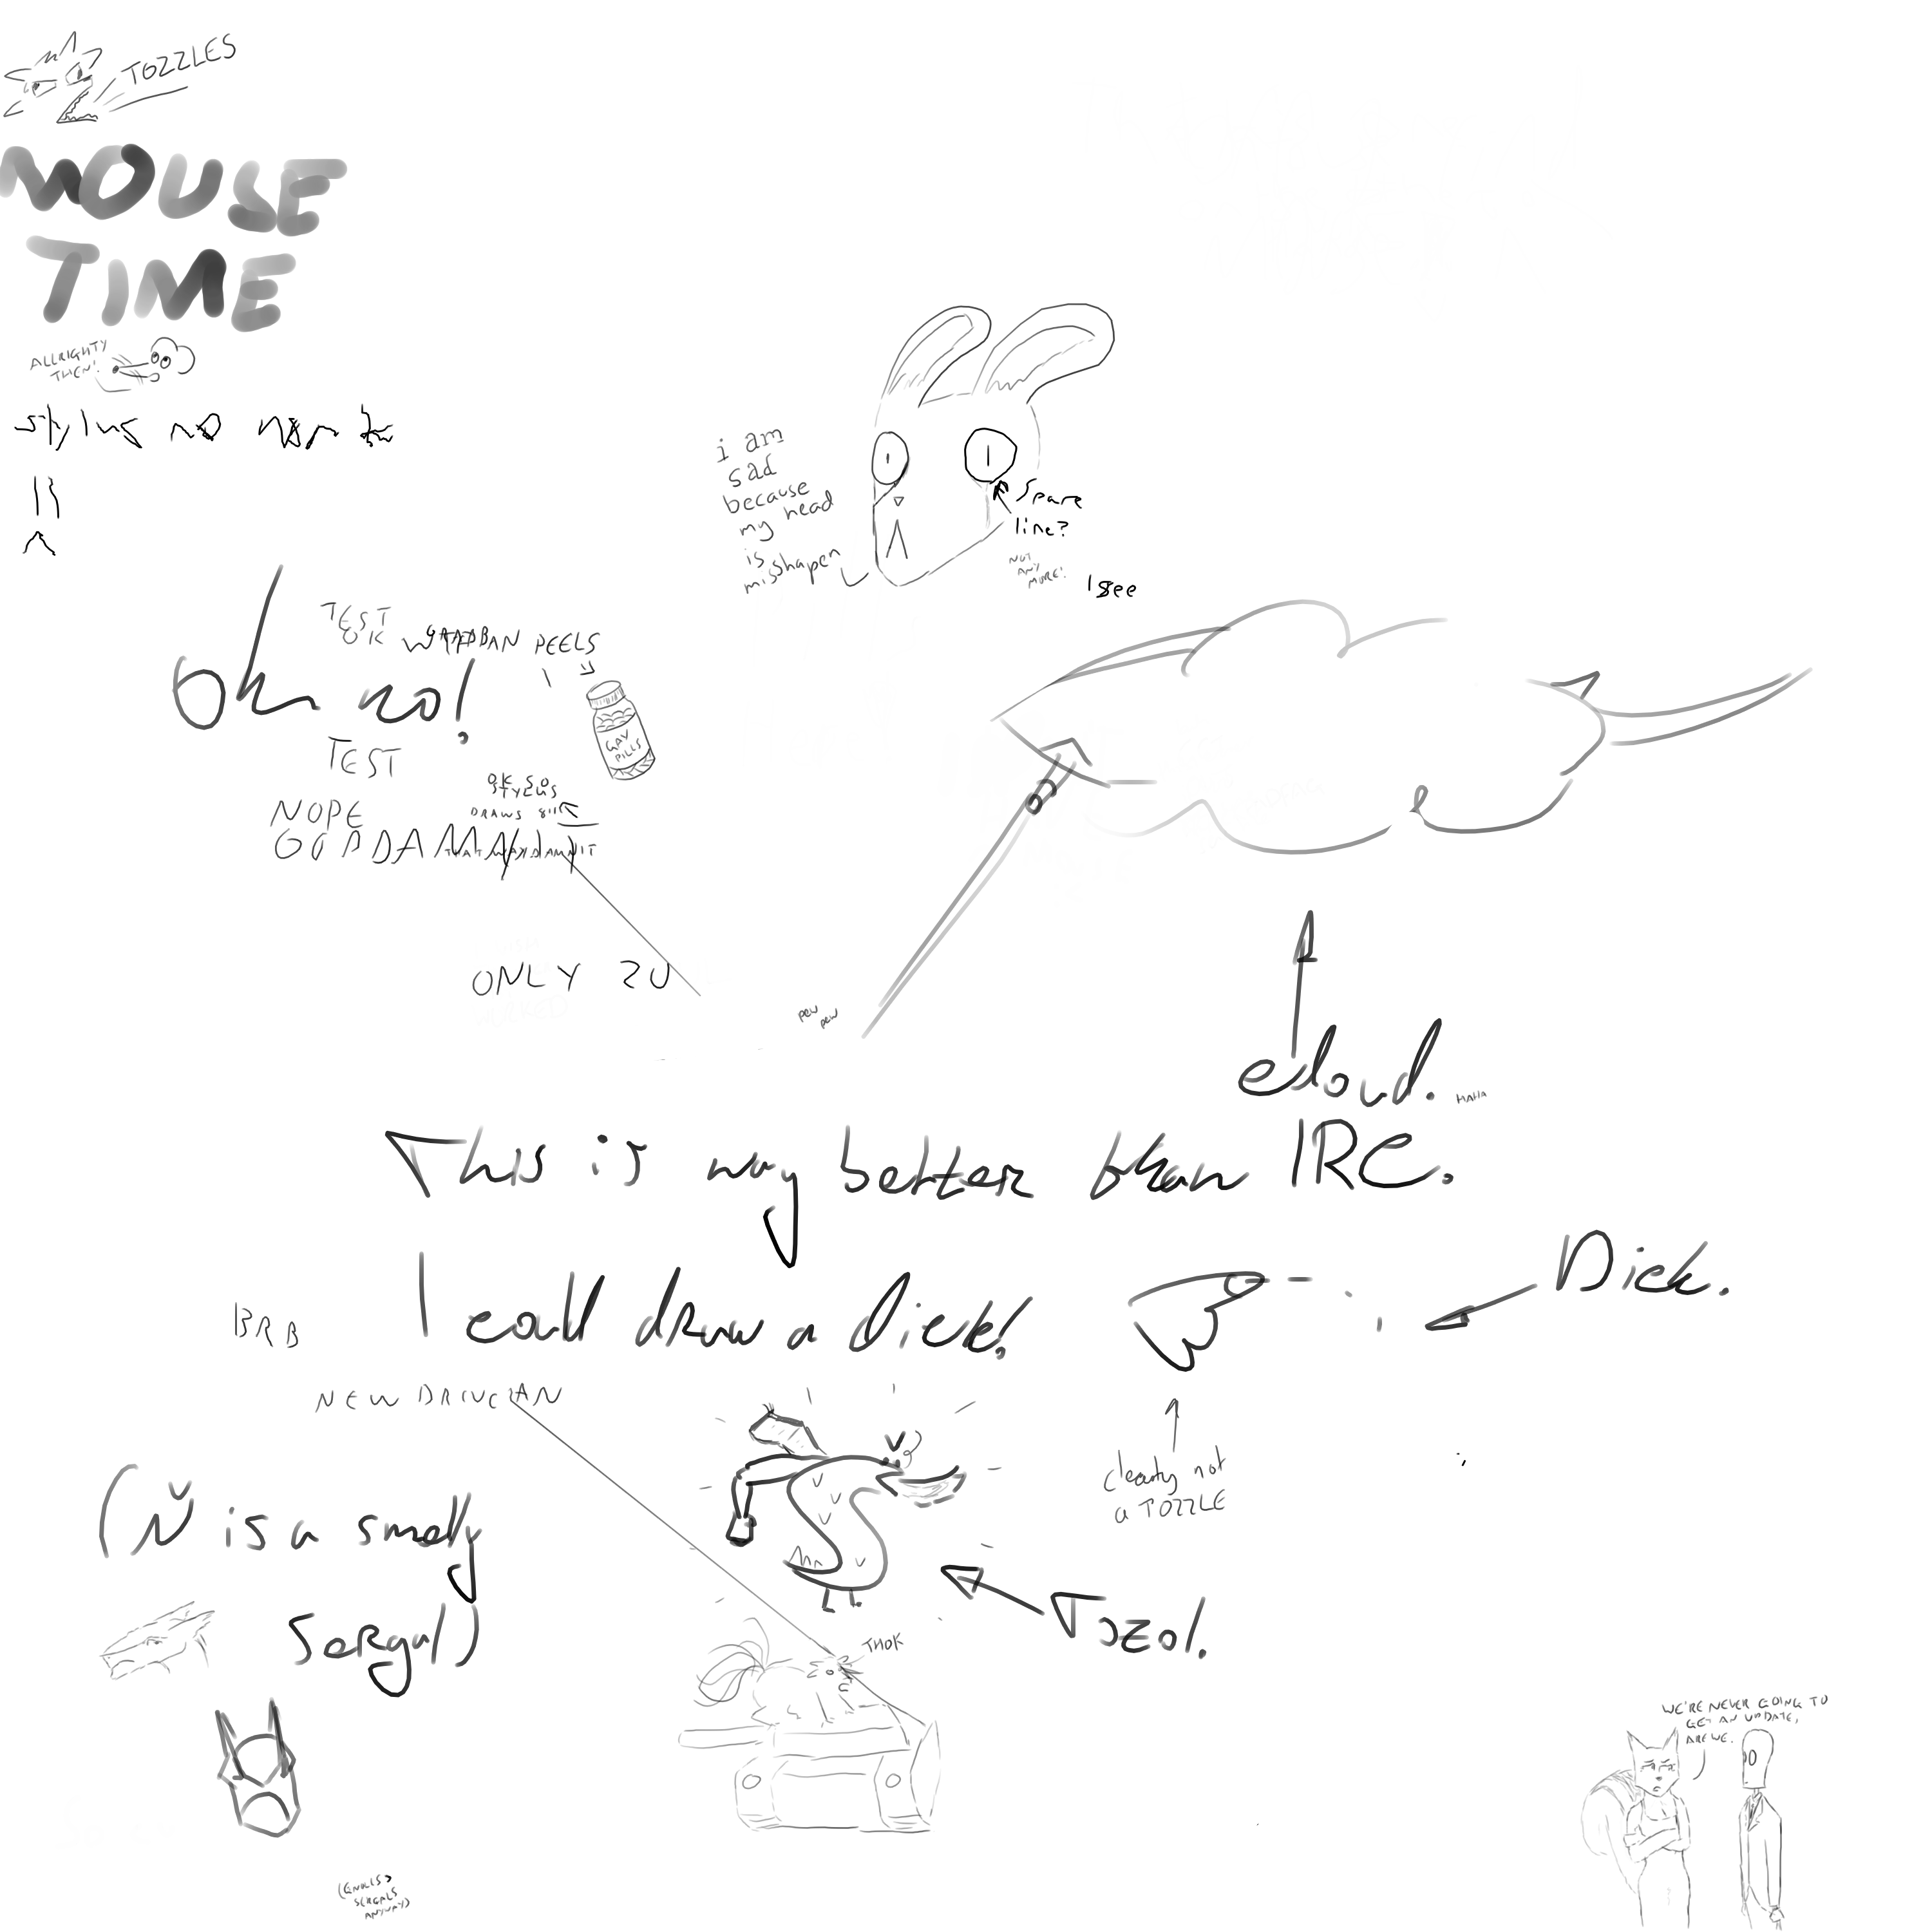 TOZZLES
MOUSE
TIME
ALLRIGHTY
THEN!
stylus no
i am
sad
because
my head
is
misshapen
Spare
line?
NOT
ANY
MORE!
I see
TEST
OK
PEELS
oh no!
GAY
PILLS
TEST
OK SO
STYLUS
DRAWS
NOPE
GODDAMMIT
THAT WAY DAMNIT
ONLY 20
pew
pew
cloud.
HAHA
This is way better than IRC.
Dick.
I could draw a dick!
BRB
NEW
clearly not
a TOZZLE
(Ň is a smelly
sergal)
Tozol.
THOK
WE'RE NEVER GOING TO
GET AN UPDATE,
ARE WE.
SERGALS
ANYWAY)